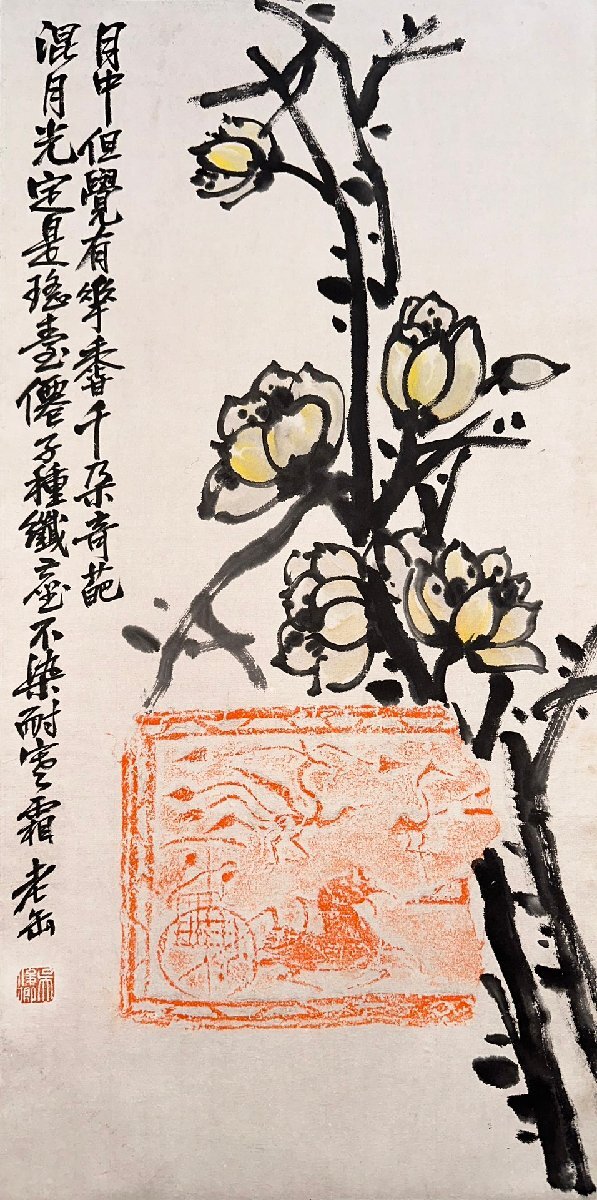 月中但覺有華香千朵奇葩
混月光定是瑤臺僊子種纖塵不染耐寒霜 老缶